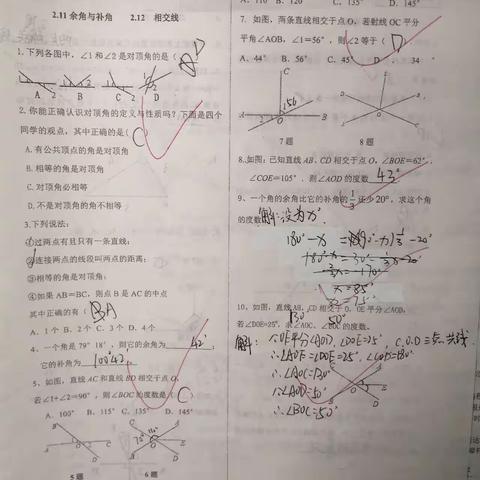 2.11 余角与补角 2.12 相交线
1.下列各图中，∠1和∠2是对顶角的是（ D
A B C D
2.你能正确认识对顶角的定义与性质吗？下面是四个
同学的观点，其中正确的是（ C ）
A.有公共顶点的角是对顶角
B.相等的角是对顶角
C.对顶角必相等
D.不是对顶角的角不相等
3.下列说法：
①过两点有且只有一条直线；
②连接两点的线段叫两点的距离；
③相等的角是对顶角；
④如果 AB＝BC，则点 B 是 AC 的中点
其中正确的有（ BA
A. 1个 B. 2个 C. 3个 D. 4个
4、一个角是 79°18′，则它的余角为
它的补角为 100°42′
5、如图，直线 AC 和直线 BD 相交于点 O，
若∠1＋∠2＝90°，则∠BOC 的度数是（ C ）
A. 100° B. 115° C. 135° D. 145°
5题 6题
A. 110° B. 120° C. 135° D. 145°
7、如图，两条直线相交于点 O，若射线 OC 平分
平角∠AOB，∠1＝56°，则∠2等于（ D ）
A. 44° B. 56° C. 45° D. 34°
7题 8题
8.如图，已知直线 AB、CD 相交于点 O，∠BOE＝62°，
∠COE＝105°，则∠AOD 的度数 43°
9、一个角的余角比它的补角的 1/3 还少 20°，求这个角
的度数 解：设为x°
x = 75°
10、如图，直线 AB、CD 相交于 O，OE 平分∠AOD，
若∠DOE＝25°，求∠AOC、∠BOC 的度数．
130° 50°
解：∵OE平分∠AOD，∠DOE=25°，C.O.D三点共线
∴∠AOE=∠DOE=25°，∠COD=180°
∴∠AOC=130°
∴∠AOD=50°
∴∠BOC=50°